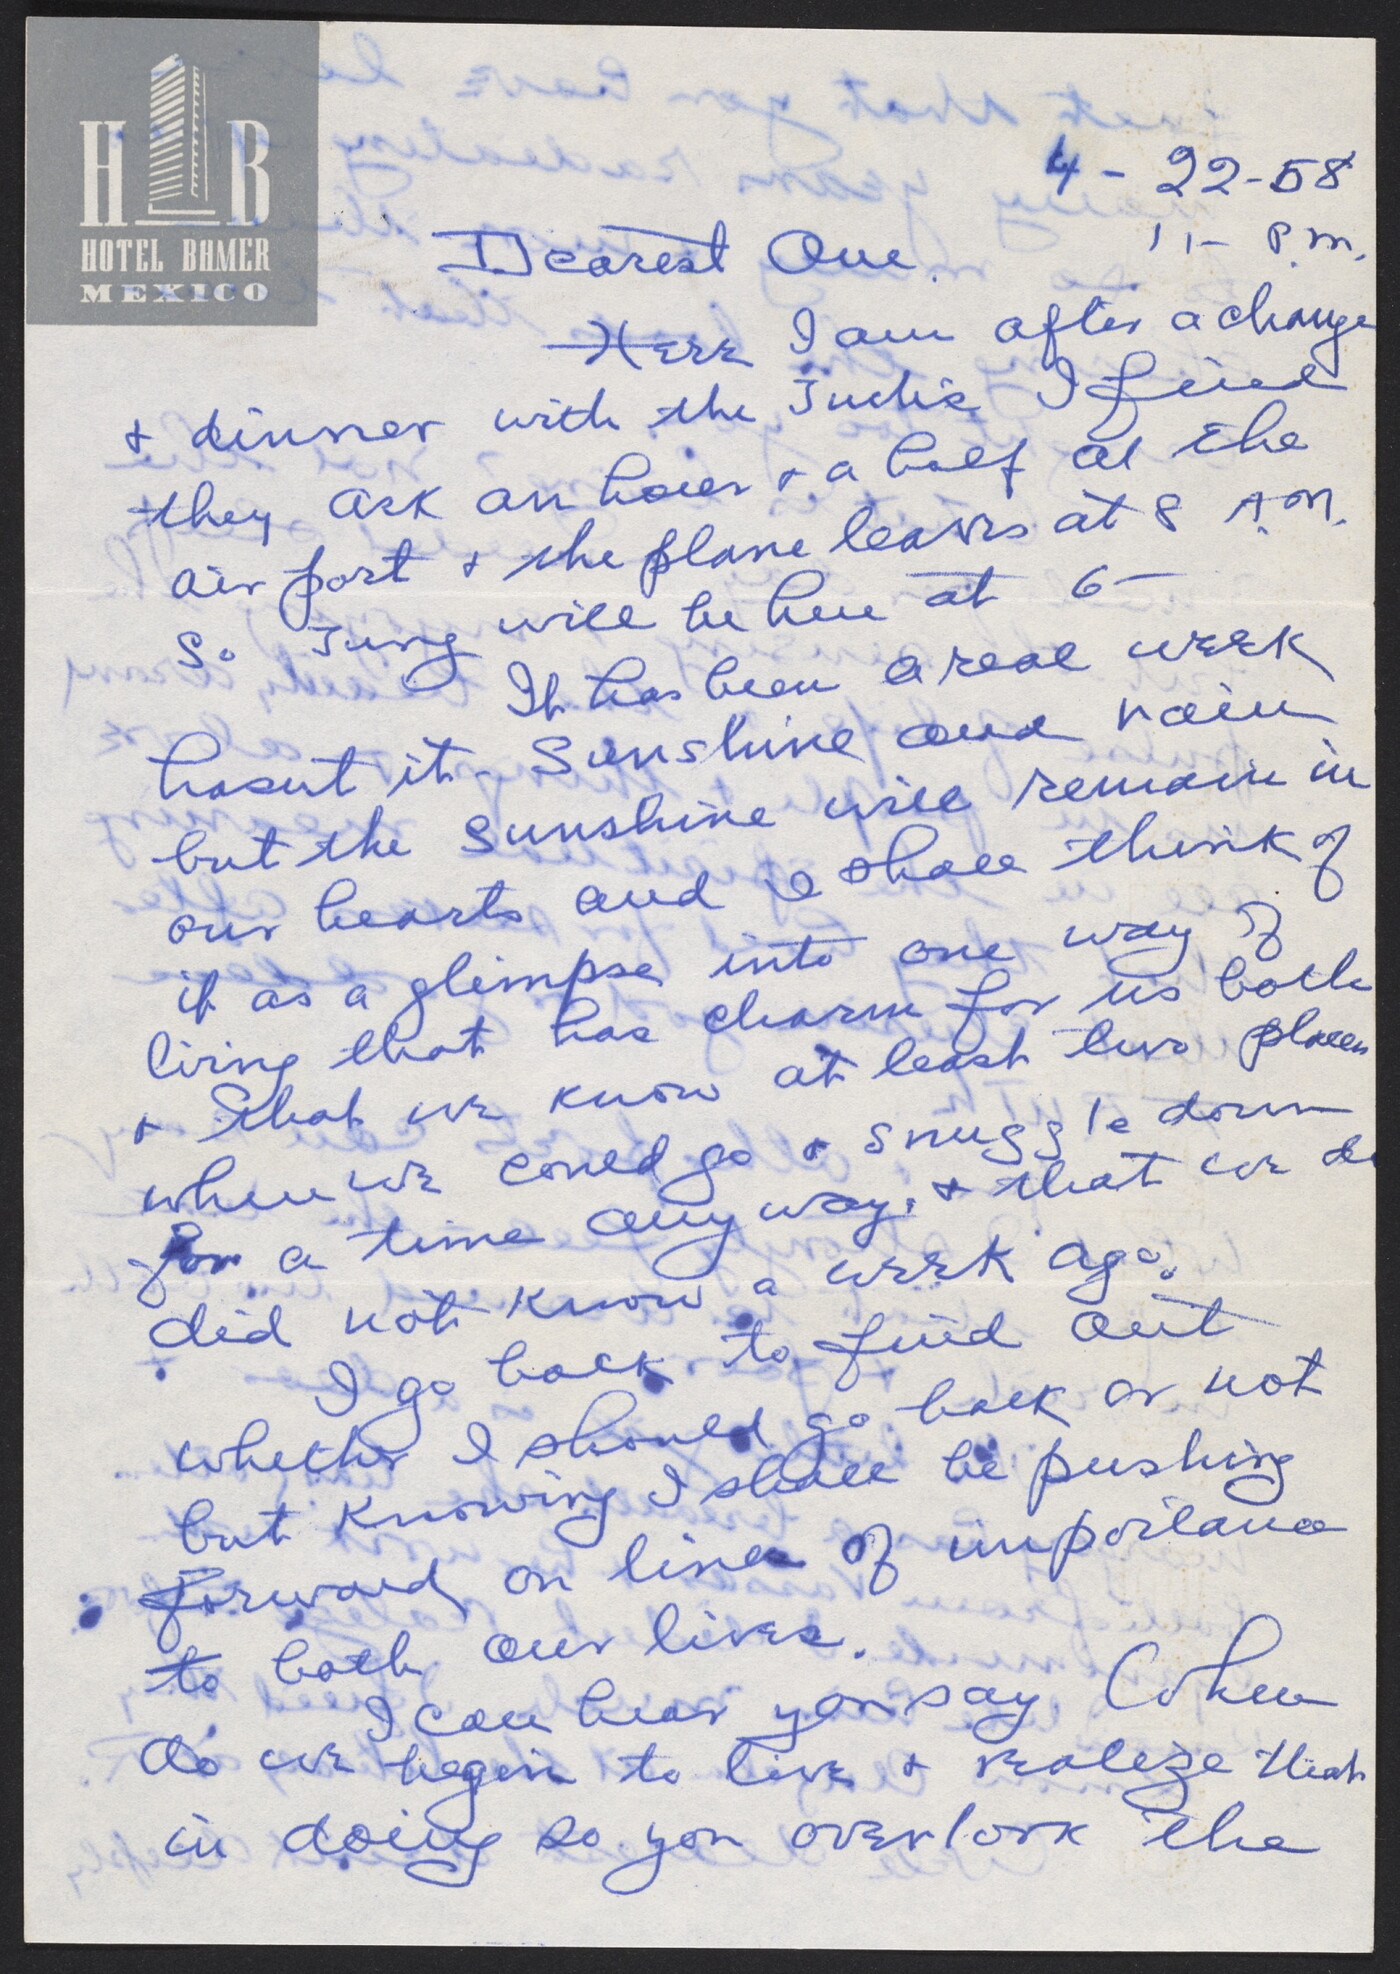 H B
HOTEL BAMER
MEXICO
4 - 22-58
11- P.M.
Dearest One.
Here I am after a change
& dinner with the I find
they ask an hour & a half at the
air port & the plane leaves at 8 A.M.
So Jung will be here at 6-
It has been a real week
hasnt it - Sunshine and rain
but the sunshine will remain in
our hearts and I shall think of
it as a glimpse into one way of
living that has charm for us both
& that we know at least two places
where we could go & snuggle down
for a time any way. & that we
did not know a week ago.
I go back to find out
whether I should go back or not
but knowing I shall be pushing
forward on lines of importance
to both our lives.
I can hear you say O when
do we begin to live & realize that
in doing so you overlook the